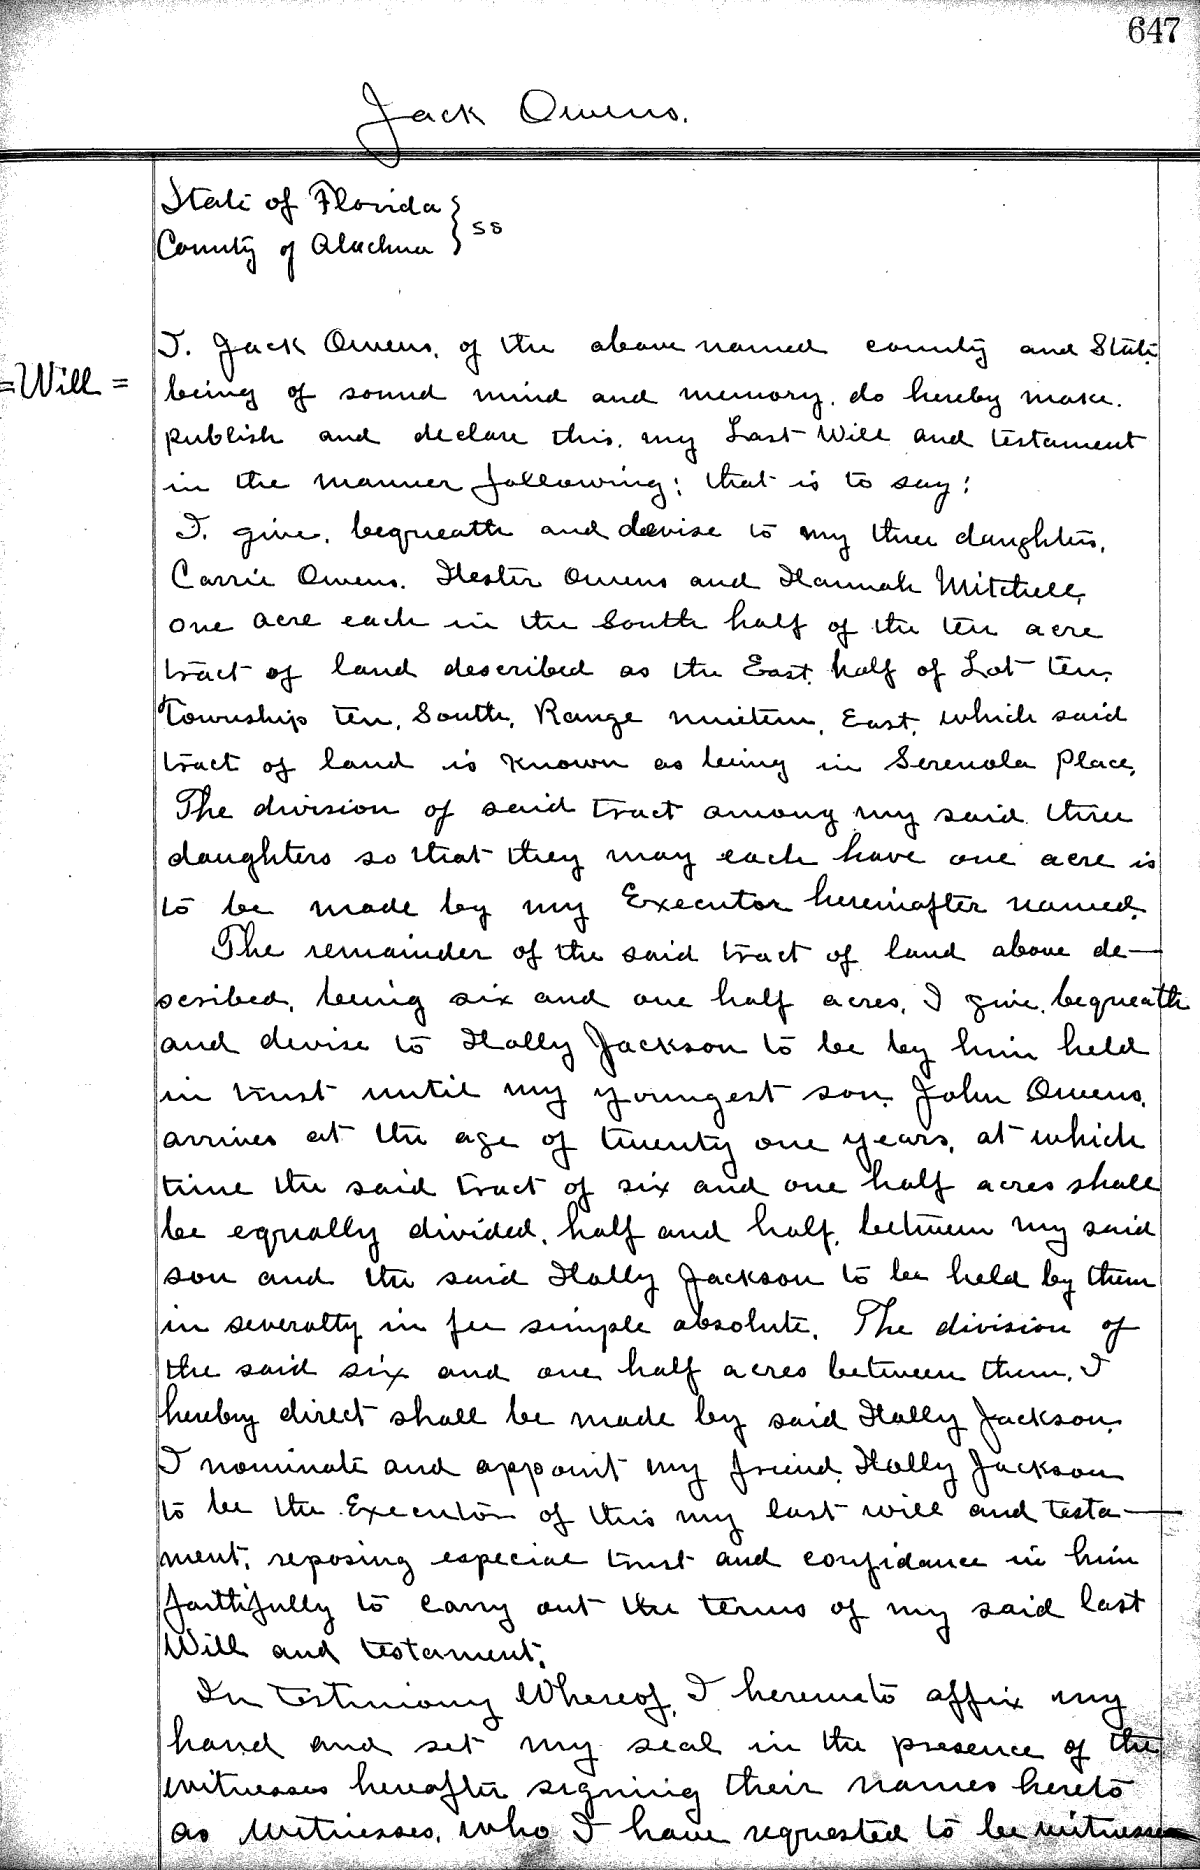 647
Jack Owens.
State of Florida }
County of Alachua } ss
=Will=
I. Jack Owens, of the above named county and State
being of sound mind and memory, do hereby make.
publish and declare this, my Last Will and testament
in the manner following; that is to say:
I, give, bequeath and devise to my three daughters,
Carrie Owens. Hester Owens and Hannah Mitchell,
one acre each in the South half of the ten acre
tract of land described as the East half of Lot ten,
Township ten, South, Range nineteen, East, which said
tract of land is known as being in Serenola Place,
The division of said tract among my said three
daughters so that they may each have one acre is
to be made by my Executor hereinafter named.
The remainder of the said tract of land above de-
scribed, being six and one half acres, I give, bequeath
and devise to Holly Jackson to be by him held
in trust until my youngest son, John Owens,
arrives at the age of twenty one years, at which
time the said tract of six and one half acres shall
be equally divided, half and half, between my said
son and the said Holly Jackson to be held by them
in severalty in fee simple absolute. The division of
the said six and one half acres between them, I
hereby direct shall be made by said Holly Jackson.
I nominate and appoint my friend, Holly Jackson
to be the Executor of this my last will and testa-
ment, reposing especial trust and confidance in him
faithfully to carry out the terms of my said last
Will and testament.
In Testimony Whereof, I hereunto affix my
hand and set my seal in the presence of the
witnesses hereafter signing their names hereto
as witnesses, who I have requested to be witnesses